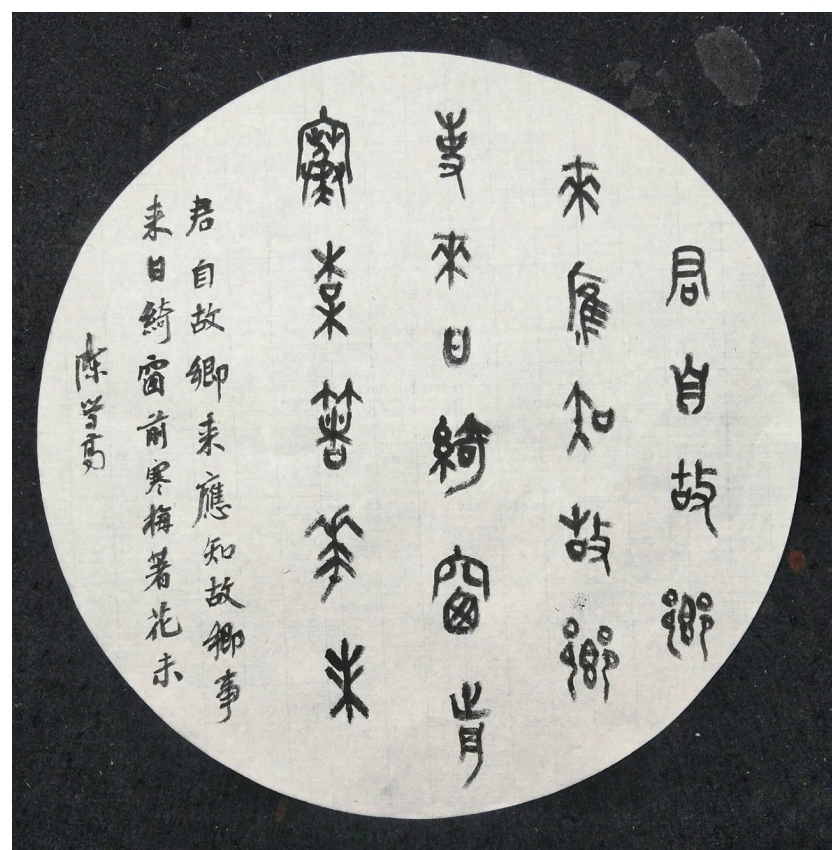 君自故鄉
來應知故鄉
事來日綺窗前
寒梅著花未
君自故鄉来應知故鄉事
来日綺窗前寒梅著花未
陈学高